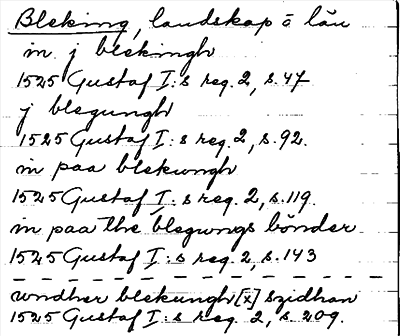 Bleking, landskap å län
in j blekingh
1525 Gustaf I:s reg. 2, s. 47
j blegungh
1525 Gustaf I:s reg. 2, s. 92.
in paa blekungh
1525 Gustaf I:s reg. 2, s. 119.
in paa the blegungs bönder
1525 Gustaf I:s reg. 2, s. 143
wndher blekungh[x] szidhan
1525 Gustaf I:s reg. 2, s. 209.